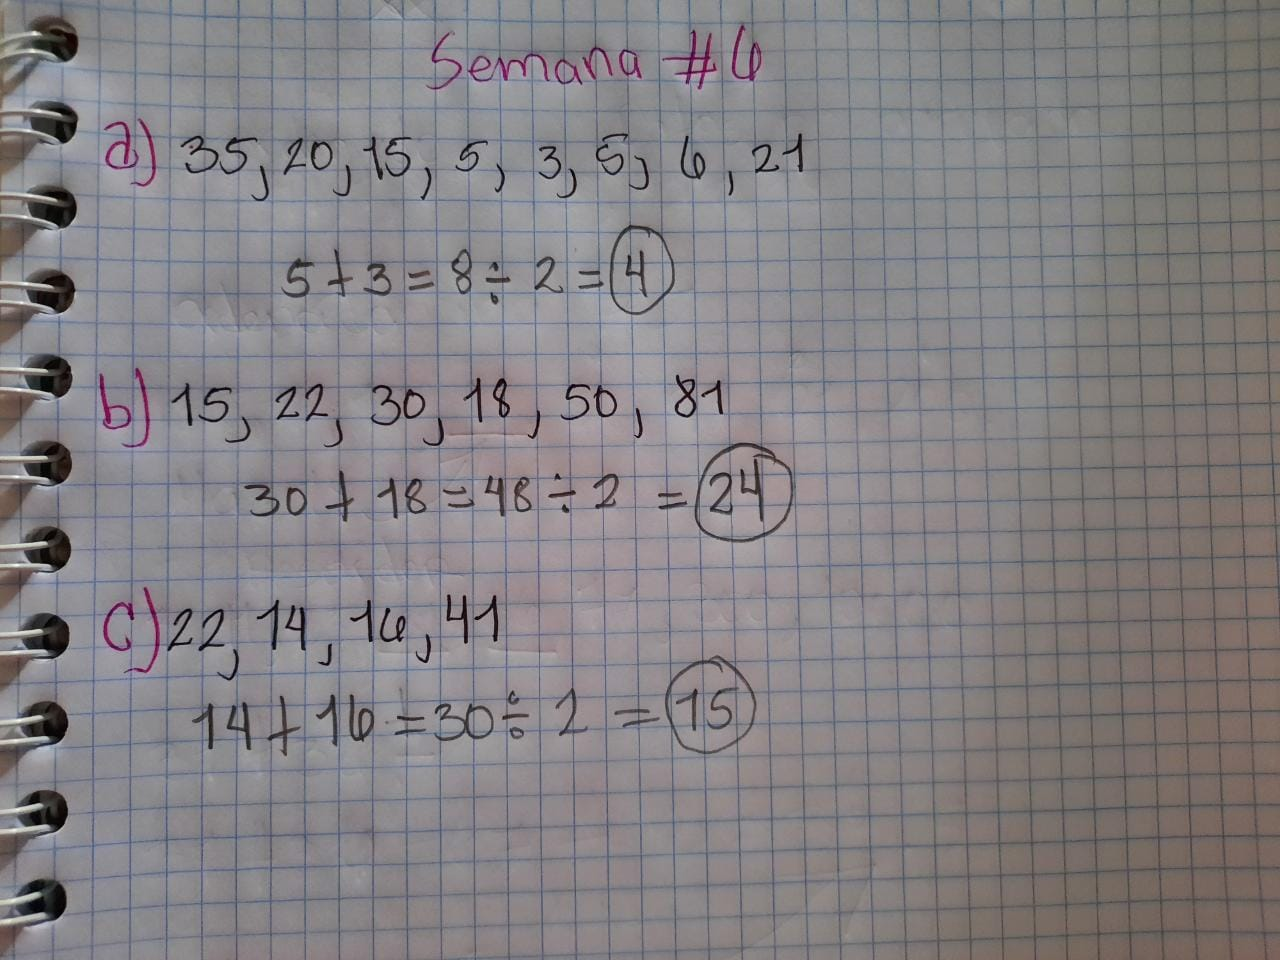 Semana #6
a) 35, 20, 15, 5, 3, 5, 6, 21
5+3=8÷2=4
b) 15, 22, 30, 18, 50, 81
30+18=48÷2 =24
c) 22, 14, 16, 41
14+16=30÷2 =15